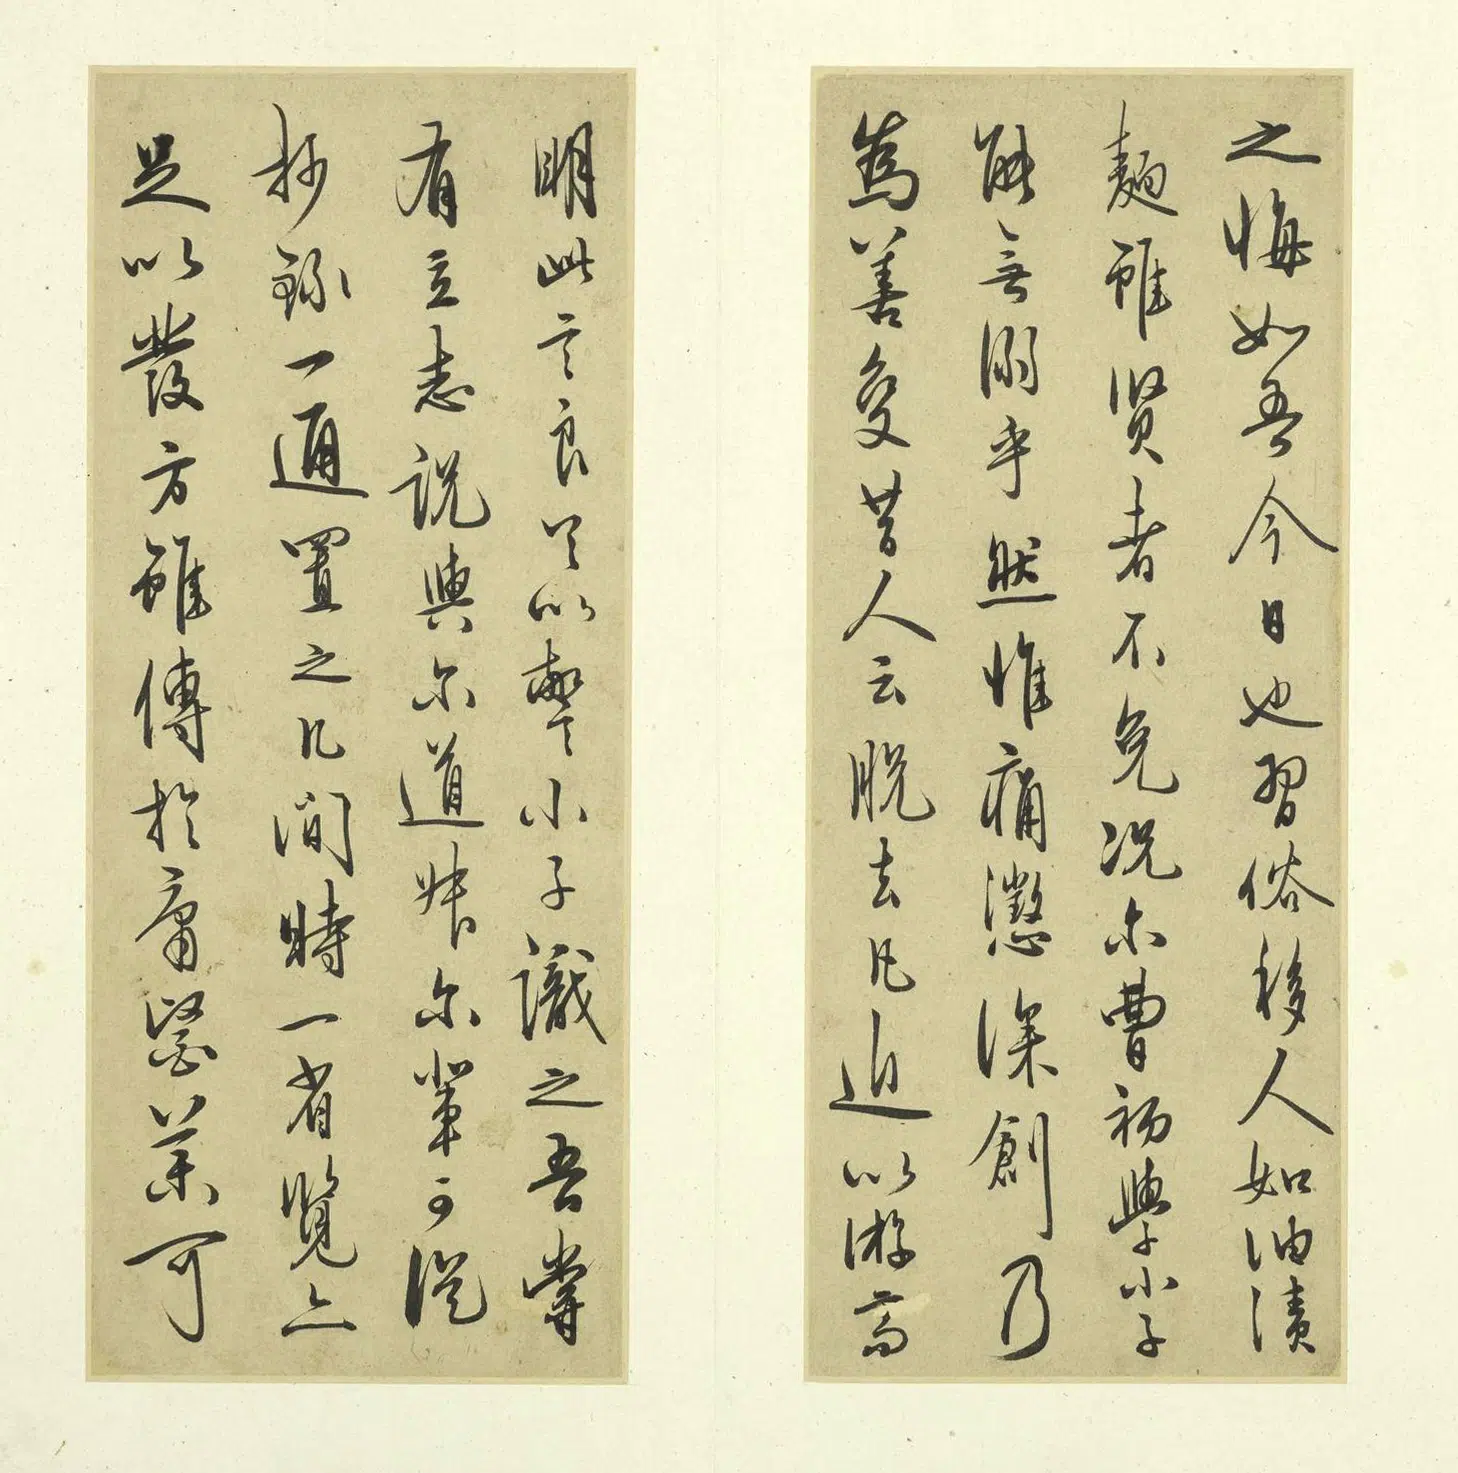 之悔如吾今日也習俗移人如油漬
麺雖賢者不免況尔曹初學小子
能無溺乎然惟痛懲深創乃
為善変昔人云脫去凡近以游高
明此言良足以警小子識之吾嘗
有立志說與尔道叔尔輩可從
抄錄一通置之几間時一省覽亦
足以發方雖傳於庸醫藥可